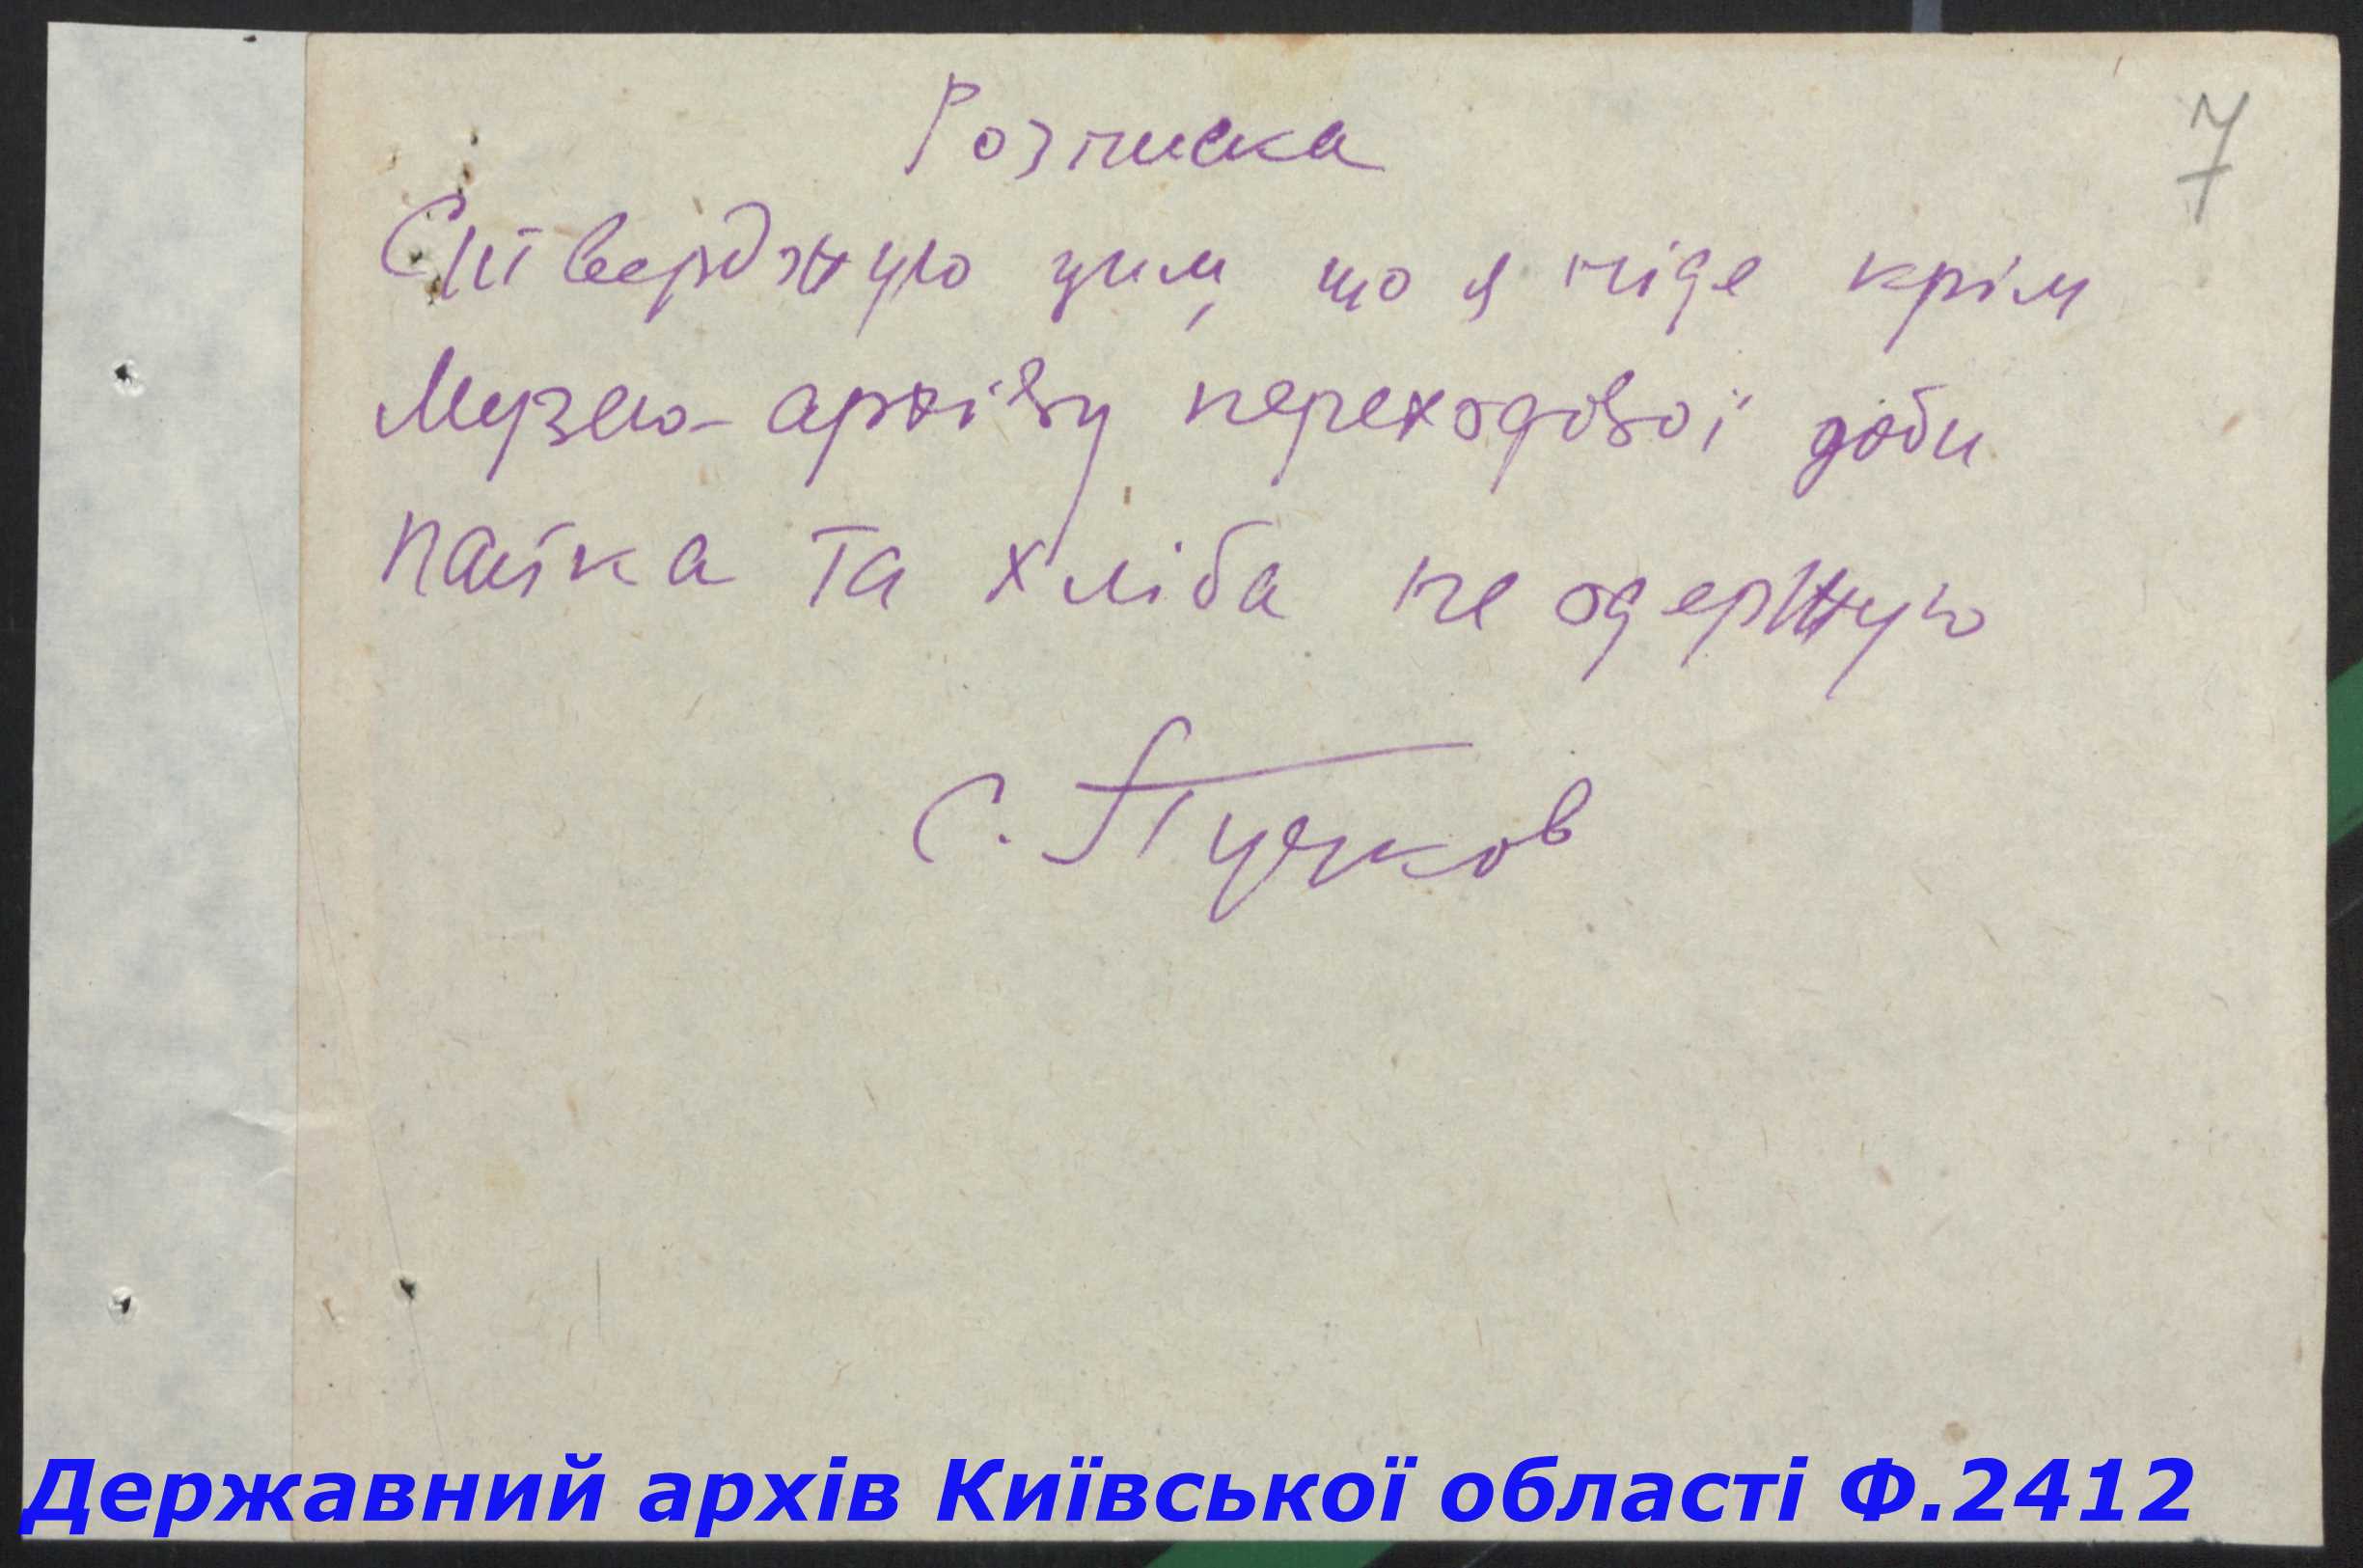 Розписка
7
Стверджую цим, що я ніде крім
Музею-архіву переходової доби
пайка та хліба не одержую
С. Пучков
Державний архів Київської області Ф.2412